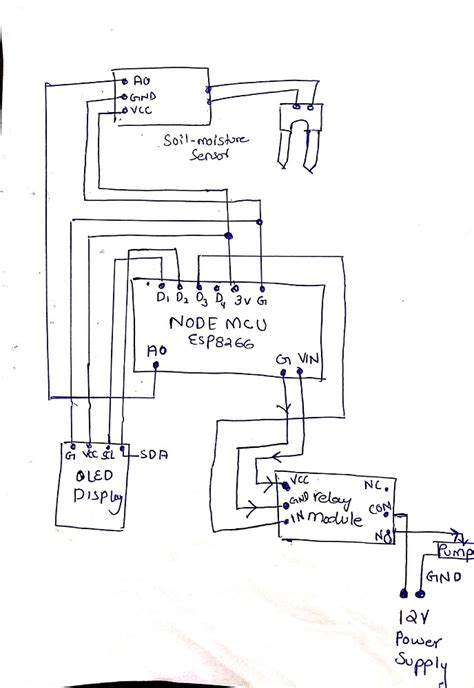 A0
GND
VCC
Soil-moisture
Sensor
D1 D2 D3 D4 3V G
NODE MCU
ESP8266
A0
G VIN
G VCC SCL SDA
OLED
Display
VCC
GND
IN
relay
module
NC
CON
NO
Pump
GND
12V
Power
Supply